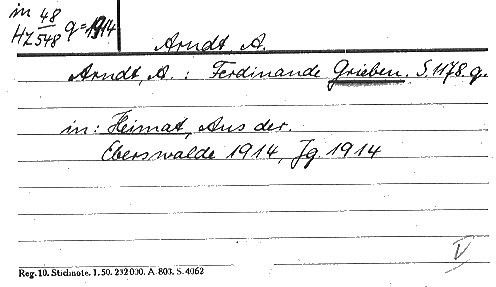 in 48
HZ 548 q=1914
Arndt A.
Arndt, A.: Ferdinande Grieben. S. 1178. q.
in: Heimat, Aus der.
Eberswalde 1914, Jg. 1914
V
Reg. 10. Stichnote. 1. 50. 232000. A 803. S. 4062